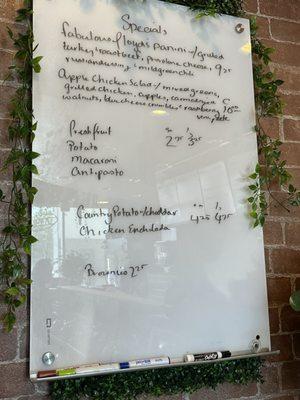 Specials
fabulous floyds panini - grilled
turkey, roast beef, provolone cheese, 9.25
russian dressing & mild green chili
Apple Chicken Salad - mixed greens,
grilled chicken, apples, caramelized
walnuts, bleu cheese crumbles & raspberry
Fresh fruit
Potato
Macaroni
Antipasto
Country Potato - cheddar 4.25
Chicken Enchilada
Brownie 2.25